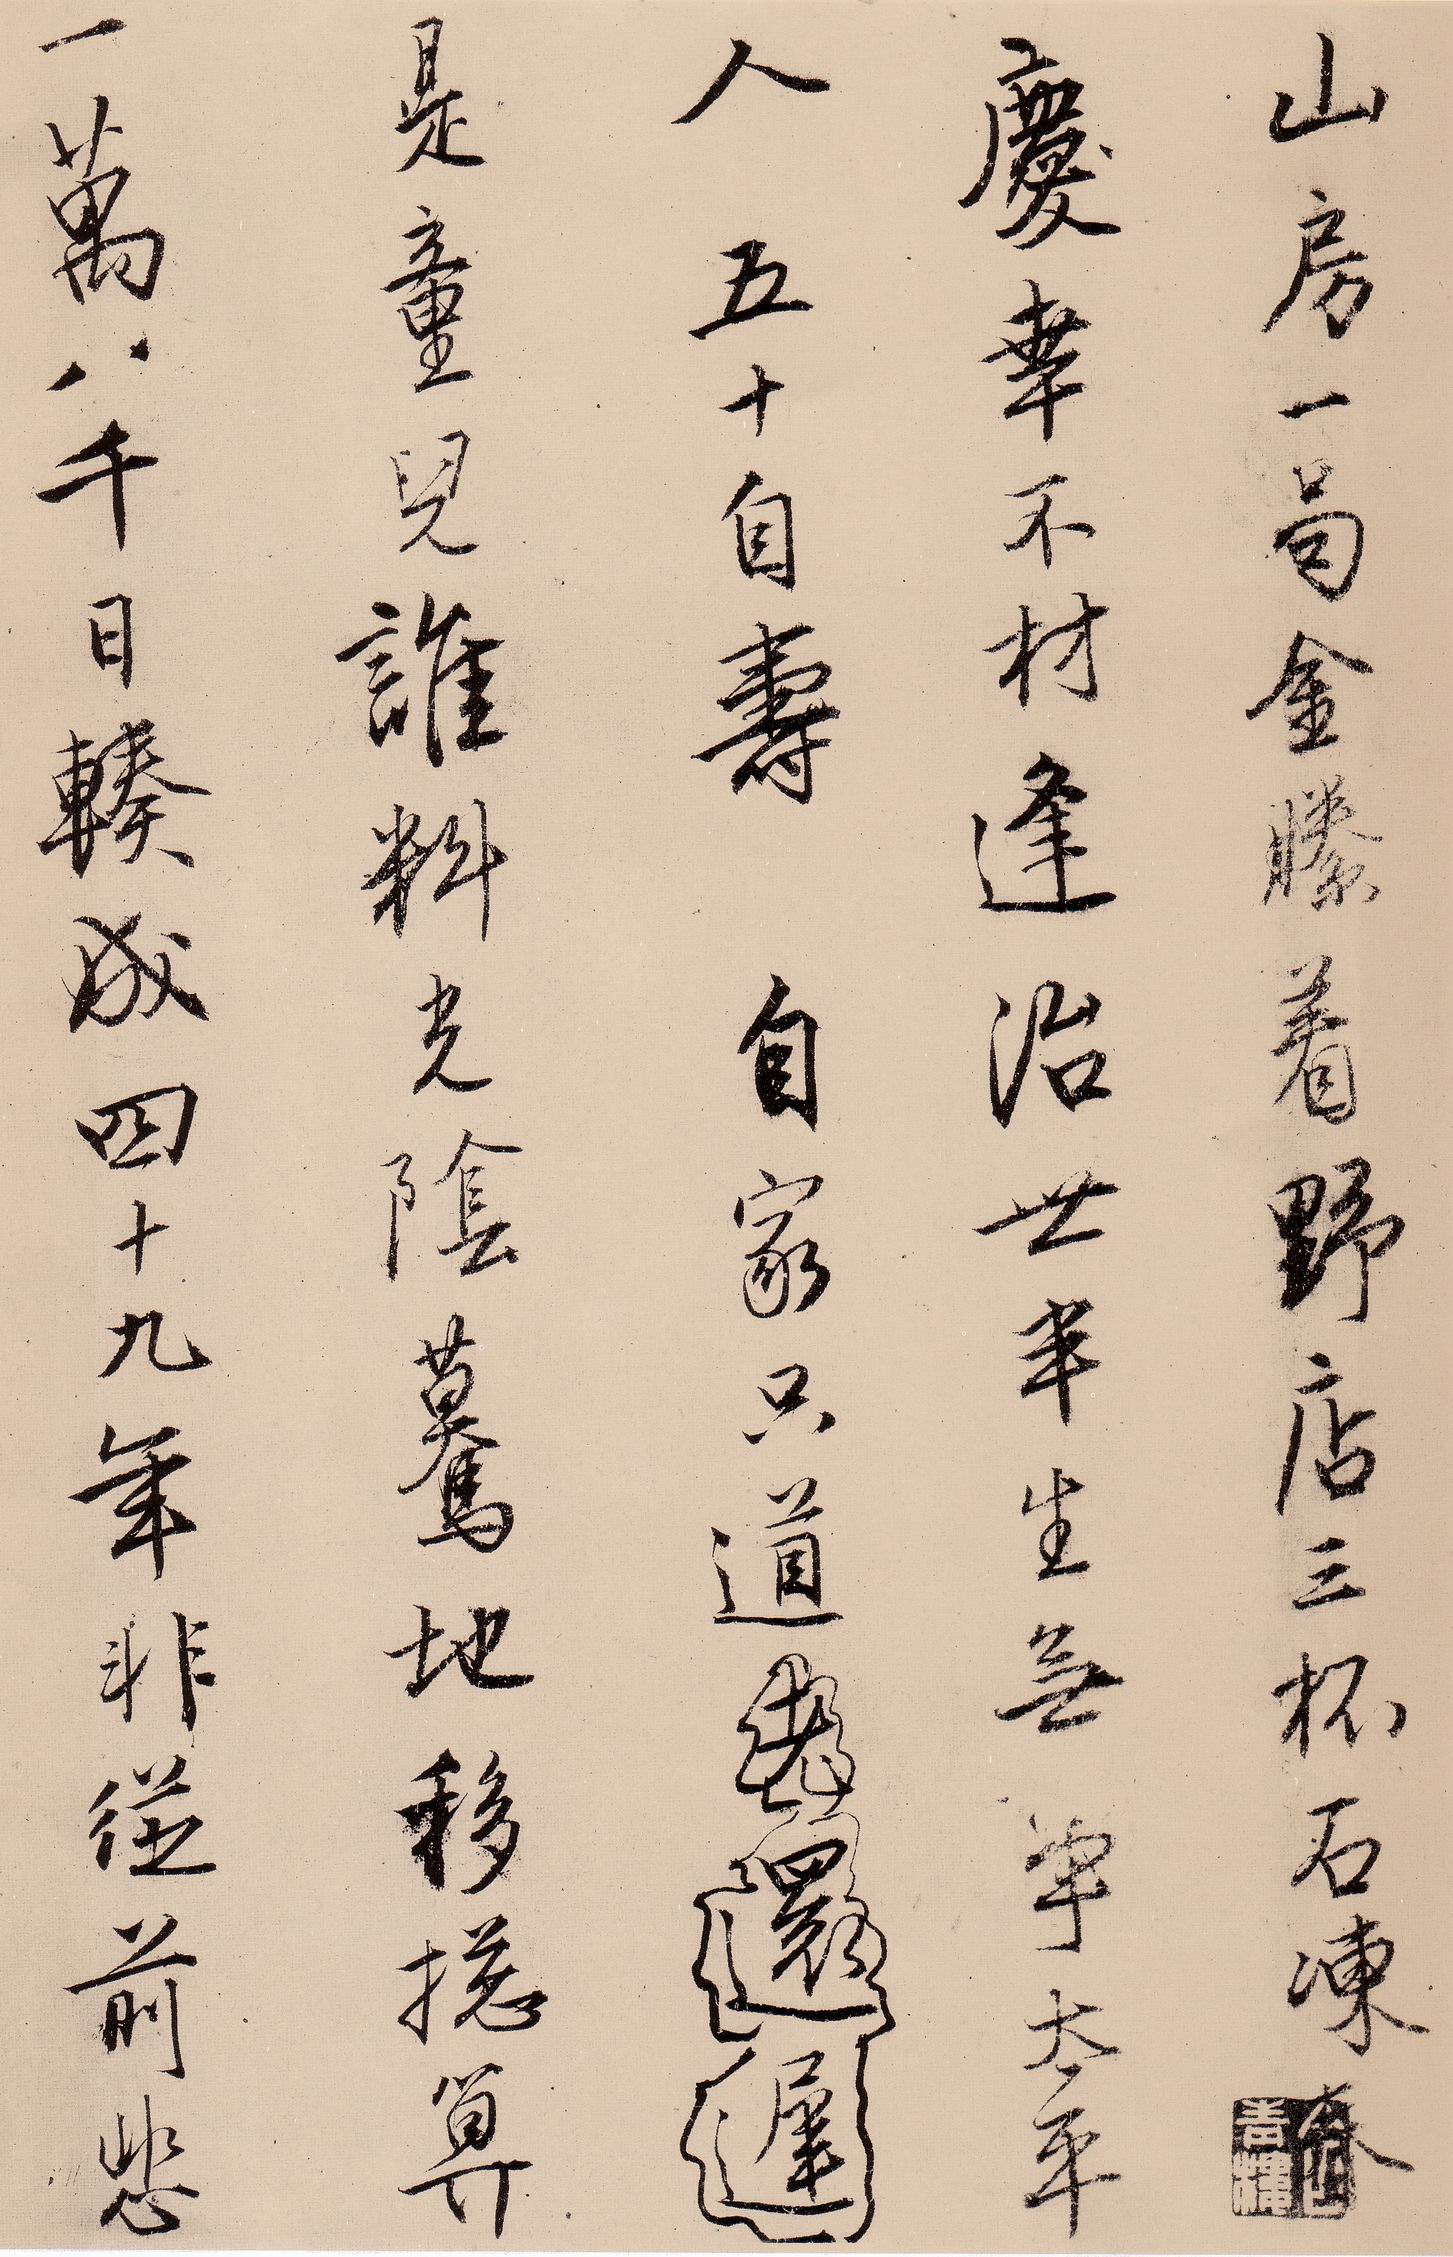 山房一局金縢着野店三杯石凍春
慶幸不材逢治世半生無事太平
人 五十自壽 自家只道還遲
是童兒誰料光陰驀地移摠算
一萬八千日輳成四十九年非從前悲